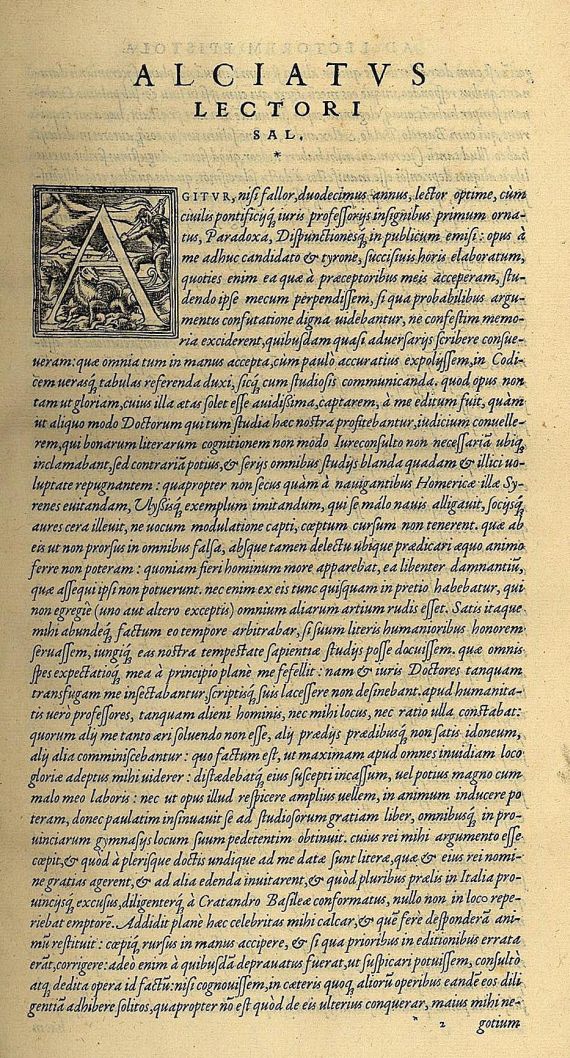 ALCIATVS
LECTORI
SAL.
*
AGITVR, nisi fallor, duodecimus annus, lector optime, cùm
ciuilis pontificijq́; iuris professorijs insignibus primum orna-
tus, Paradoxa, Dispunctionesq́; in publicum emisi: opus à
me adhuc candidato & tyrone, succisiuis horis elaboratum,
quoties enim ea quæ à præceptoribus meis acceperam, stu-
dendo ipse mecum perpendissem, si qua probabilibus argu-
mentis confutatione digna uidebantur, ne confestim memo-
ria exciderent, quibusdam quasi aduersarijs scribere consue-
ueram: quæ omnia tum in manus accepta, cùm paulò accuratius expolyssem, in Codi-
cem uerasq́; tabulas referenda duxi, sicq́; cum studiosis communicanda. quod opus non
tam ut gloriam, cuius illa ætas solet esse auidißima, captarem, à me editum fuit, quàm
ut aliquo modo Doctorum qui tum studia hæc nostra profitebantur, iudicium conuelle-
rem, qui bonarum literarum cognitionem non modò Iureconsulto non necessariā ubiq;
inclamabant, sed contrariā potius, & serijs omnibus studijs blanda quadam & illici uo-
luptate repugnantem: quapropter non secus quàm à nauigantibus Homericæ illæ Sy-
renes euitandam, Ulyssisq́; exemplum imitandum, qui se málo nauis alligauit, socijsq́;
aures cera illeuit, ne uocum modulatione capti, cœptum cursum non tenerent. quæ ab
eis ut non prorsus in omnibus falsa, absque tamen delectu ubique prædicari æquo animo
ferre non poteram: quoniam fieri hominum more apparebat, ea libenter damnantiu,
quæ assequi ipsi non potuerunt. nec enim ex eis tunc quisquam in pretio habebatur, qui
non egregiè (uno aut altero exceptis) omnium aliarum artium rudis esset. Satis itaque
mihi abundeq́; factum eo tempore arbitrabar, si suum literis humanioribus honorem
seruassem, iungiq́; eas nostra tempestate sapientiæ studijs posse docuissem. quæ omnis
spes expectatioq́; mea à principio planè me fefellit: nam & iuris Doctores tanquam
transfugam me insectabantur, scriptisq́; suis lacessere non desinebant. apud humanita-
tis uerò professores, tanquam alieni hominis, nec mihi locus, nec ratio ulla constabat:
quorum alij me tanto æri soluendo non esse, alij prædijs prædibusq́; non satis idoneum,
alij alia comminiscebantur: quo factum est, ut maximam apud omnes inuidiam loco
gloriæ adeptus mihi uiderer: distædebatq́; eius suscepti incassum, uel potius magno cum
malo meo laboris: nec ut opus illud respicere amplius uellem, in animum inducere po
teram, donec paulatim insinuauit se ad studiosorum gratiam liber, omnibusq́; in pro-
uinciarum gymnasijs locum suum pedetentim obtinuit. cuius rei mihi argumento esse
cœpit, & quòd à plerisque doctis undique ad me datæ sunt literæ, quæ & eius rei nomi-
ne gratias agerent, & ad alia edenda inuitarent, & quòd pluribus prælis in Italia pro-
uincijsq́; excusus, diligenterq́; à Cratandro Basileæ conformatus, nullo non in loco repe-
riebat emptorē. Addidit planè hæc celebritas mihi calcar, & quē ferè desponderā ani-
mū restituit: cœpiq́; rursus in manus accipere, & si qua prioribus in editionibus errata
erāt, corrigere: adeò enim à quibusdā deprauatus fuerat, ut suspicari potuissem, consultò
atq́; dedita opera id factū: nisi cognouissem, in cæteris quoq́; aliorū operibus eandē eos dili
gentiā adhibere solitos, quapropter nō est quòd de eis ulterius conquerar, maius mihi ne-
* 2 gotium